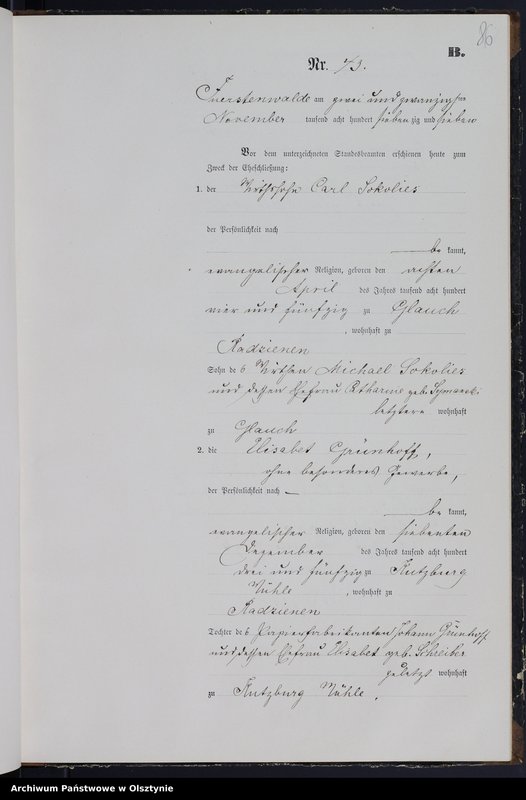 86
B.
Nr. 73.
Fuerstenwalde am zwei und zwanzigsten
November tausend acht hundert siebenzig und sieben
Vor dem unterzeichneten Standesbeamten erschienen heute zum
Zweck der Eheschließung:
1. der Wirthssohn Carl Sokolies
der Persönlichkeit nach
be kannt,
evangelischer Religion, geboren den achten
April des Jahres tausend acht hundert
vier und fünfzig zu Glauch
, wohnhaft zu
Radzienen
Sohn des Wirthen Michael Sokolies
und dessen Ehefrau Catharine geb.
letztere wohnhaft
zu Glauch
2. die Elisabet Grünhoff,
ohne besonderes Gewerbe,
der Persönlichkeit nach
be kannt,
evangelischer Religion, geboren den siebenten
Dezember des Jahres tausend acht hundert
drei und fünfzig zu Kutzburg
Mühle , wohnhaft zu
Radzienen
Tochter des Papierfabrikanten Johann Grünhoff
und dessen Ehefrau Elisabet geb. Schreiber
wohnhaft
zu Kutzburg Mühle.
Archiwum Państwowe w Olsztynie